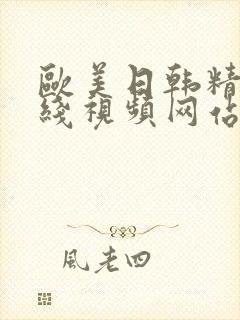 歐美日韩精
綫視頻网佔
風老四